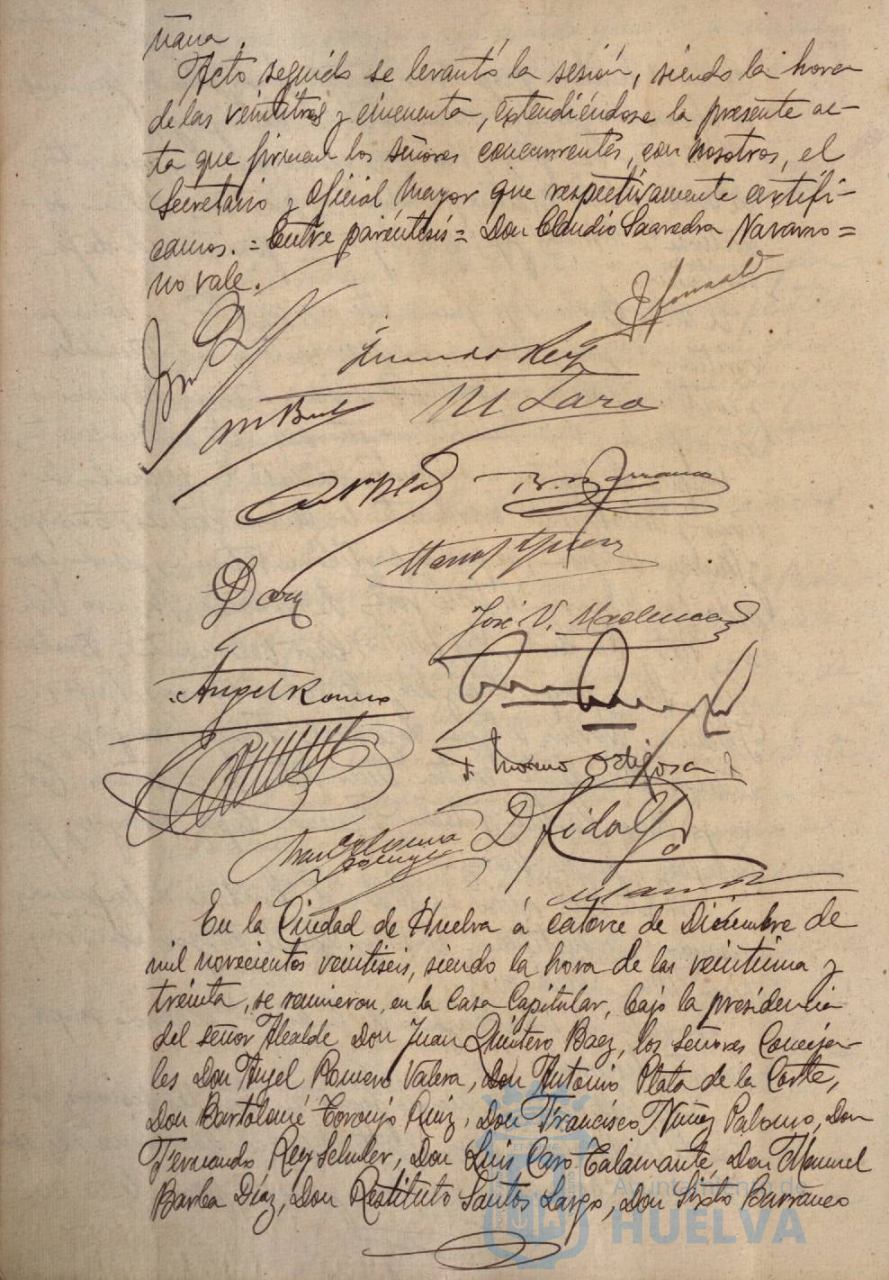 ñana.
Acto seguido se levantó la sesión, siendo la hora
de las veintitres y cincuenta, extendiéndose la presente ac-
ta que firman los señores concurrentes, con nosotros, el
Secretario y Oficial Mayor que respectivamente certifi-
camos. = Entre paréntesis = Don Claudio Saavedra Navarro =
no vale.
Fernando Rey
M Lara
José V.
Angel Romero
F. Moreno Ortigosa
D Fidalgo
En la Ciudad de Huelva á catorce de Diciembre de
mil novecientos veintiseis, siendo la hora de las veintiuna y
treinta, se reunieron, en la Casa Capitular, bajo la presidencia
del señor Alcalde Don Juan Quintero Baez, los señores Conceja-
les Don Angel Romero Valera, Don Antonio Plata de la Corte,
Don Bartolomé Toronjo Ruiz, Don Francisco Núñez Palomo, Don
Fernando Rey Schuler, Don Luis Caro Talamante, Don Manuel
Barba Díaz, Don Restituto Santos Largo, Don Sixto Barranco
Ayuntamiento de
HUELVA